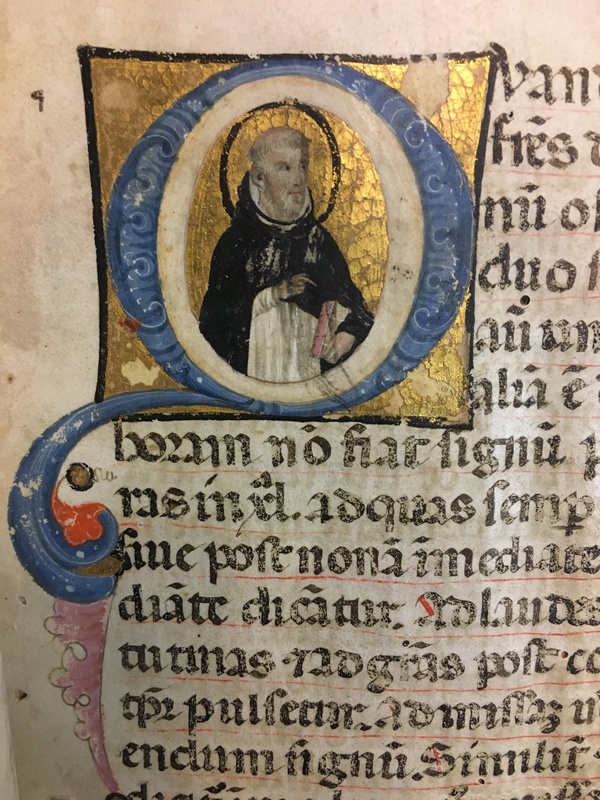 Quan
frēs d
nū of
duo s
aū un
alia ē
horam nō fiat signū p
ras in xl. ad quas semp
siue post nonā īmediate
diāte dicātur. Ad laudes
tutinas ⁊ ad grās post co
tp̄r pulsetur. ad missaz u
endum signū. Similit̄